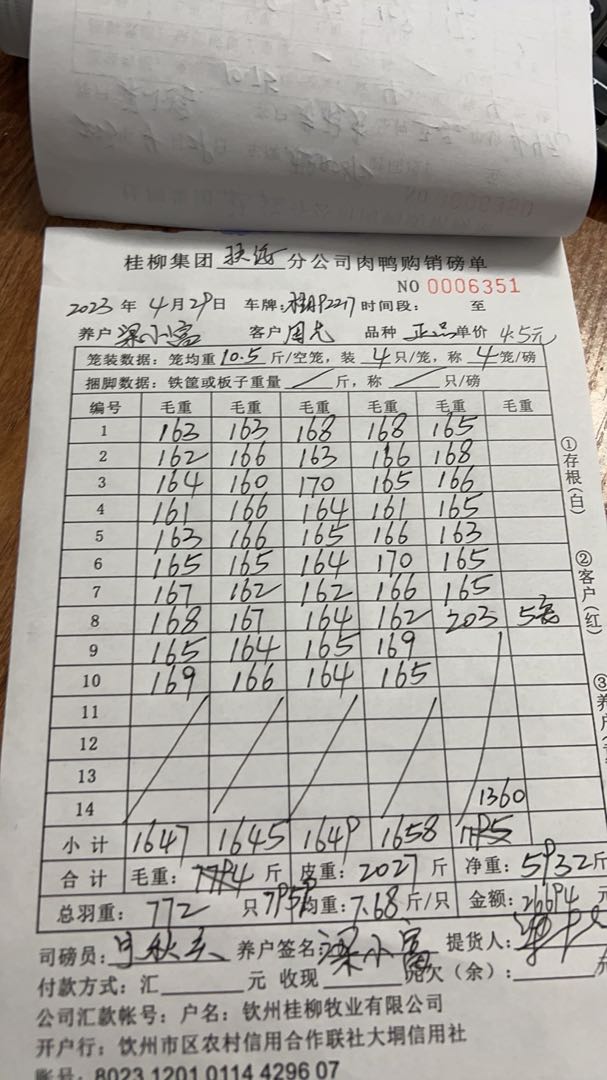 桂柳集团 分公司肉鸭购销磅单
NO 0006351
2023 年 4 月 29 日 车牌: 时间段: 至
养户 梁小富 客户 周 品种 正品 单价 4.5元
笼装数据: 笼均重 10.5 斤/空笼, 装 4 只/笼, 称 4 笼/磅
捆脚数据: 铁筐或板子重量 / 斤, 称 / 只/磅
编号 毛重 毛重 毛重 毛重 毛重 毛重
1 163 163 168 168 165
2 162 166 163 166 168
3 164 160 170 165 166
4 161 166 164 161 165
5 163 166 165 166 163
6 165 165 164 170 165
7 167 162 162 166 165
8 168 167 164 162 203 5笼
9 165 164 165 169
10 169 166 164 165
11
12
13
14 1360
小计 1647 1645 1649 1658
合计 毛重: 斤 皮重: 2027 斤 净重: 5932 斤
7959
总羽重: 772 只 均重: 7.68 斤/只 金额: 26694 元
司磅员: 养户签名: 梁小富 提货人:
付款方式: 汇 元 收现 元欠(余):
公司汇款帐号: 户名: 钦州桂柳牧业有限公司
开户行: 钦州市区农村信用合作联社大垌信用社
账号: 8023 1201 0114 4296 07
①存根(白)
②客户(红)
③养户